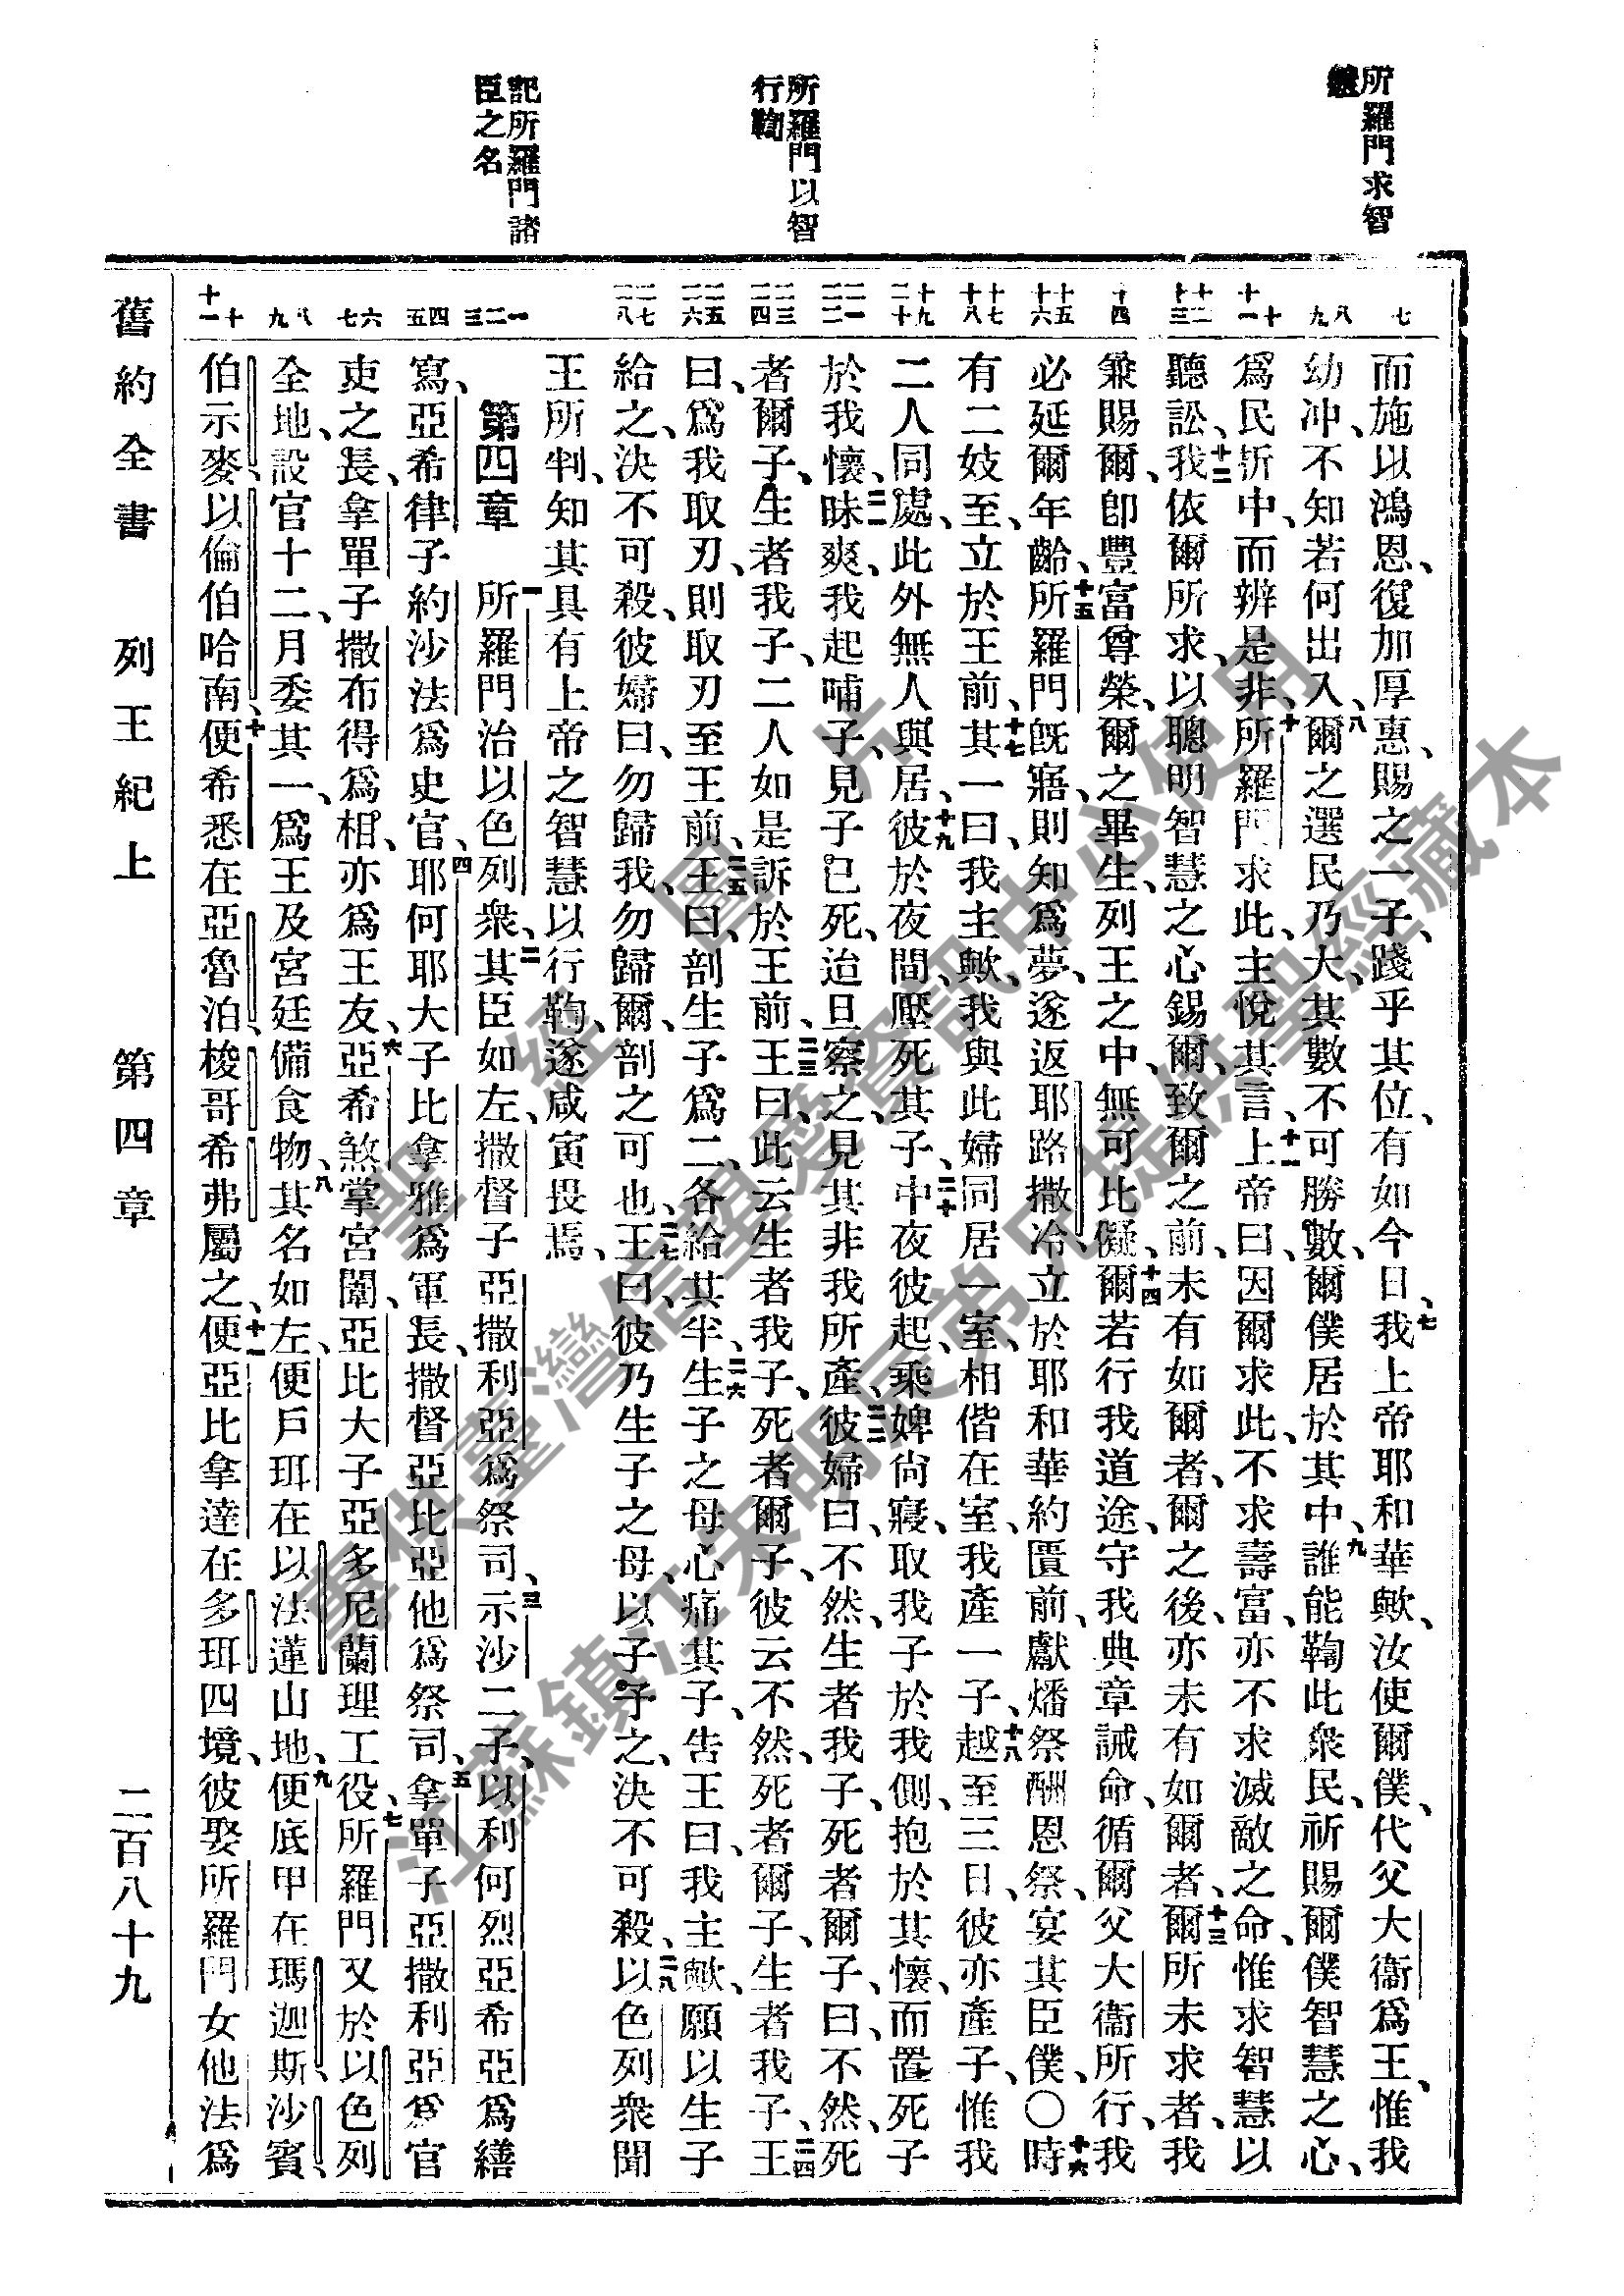 所羅門求智
所羅門以智
行鞫
記所羅門諸
臣之名
七
八
九
十
十一
十二
十三
十四
十五
十六
十七
十八
十九
二十
二一
二二
二三
二四
二五
二六
二七
二八
一
二
三
四
五
六
七
八
九
十
十一
而施以鴻恩、復加厚惠、賜之一子、踐乎其位、有如今日、七我上帝耶和華歟、汝使爾僕、代父大衞爲王、惟我
幼冲、不知若何出入、八爾之選民乃大、其數不可勝數、爾僕居於其中、九誰能鞫此衆民、祈賜爾僕智慧之心、
爲民折中、而辨是非、十所羅門求此、主悅其言、十一上帝曰、因爾求此、不求壽富、亦不求滅敵之命、惟求智慧以
聽訟、十二我依爾所求、以聰明智慧之心錫爾、致爾之前、未有如爾者、爾之後、亦未有如爾者、十三爾所未求者、我
兼賜爾、卽豐富尊榮、爾之畢生、列王之中、無可比儗、十四爾若行我道途、守我典章誡命、循爾父大衞所行、我
必延爾年齡、十五所羅門旣寤、則知爲夢、遂返耶路撒冷、立於耶和華約匱前、獻燔祭酬恩祭、宴其臣僕、○十六時
有二妓至、立於王前、十七其一曰、我主歟、我與此婦同居一室、相偕在室、我產一子、十八越至三日、彼亦產子、惟我
二人同處、此外無人與居、十九彼於夜間、壓死其子、二十中夜彼起、乘婢尙寢、取我子於我側、抱於其懷、而置死子
於我懷、二一昧爽、我起哺子、見子已死、迨旦察之、見其非我所產、二二彼婦曰、不然、生者我子、死者爾子、曰、不然、死
者爾子、生者我子、二人如是訴於王前、二三王曰、此云生者我子、死者爾子、彼云不然、死者爾子、生者我子、二四王
曰、爲我取刃、則取刃至王前、二五王曰、剖生子爲二、各給其半、二六生子之母、心痛其子、告王曰、我主歟、願以生子
給之、決不可殺、彼婦曰、勿歸我、勿歸爾、剖之可也、二七王曰、彼乃生子之母、以子予之、決不可殺、二八以色列衆聞
王所判、知其具有上帝之智慧以行鞫、遂咸寅畏焉、
第四章 一所羅門治以色列衆、二其臣如左、撒督子亞撒利亞爲祭司、三示沙二子、以利何烈亞希亞爲繕
寫、亞希律子約沙法爲史官、四耶何耶大子比拿雅爲軍長、撒督亞比亞他爲祭司、五拿單子亞撒利亞爲官
吏之長、拿單子撒布得爲相、亦爲王友、六亞希煞掌宮闈、亞比大子亞多尼蘭理工役、七所羅門又於以色列
全地、設官十二、月委其一、爲王及宮廷備食物、八其名如左、便戶珥在以法蓮山地、九便底甲在瑪迦斯沙賓、
伯示麥、以倫伯哈南、十便希悉在亞魯泊、梭哥希弗屬之、十一便亞比拿達在多珥四境、彼娶所羅門女他法爲
舊約全書 列王紀上 第四章 二百八十九
聖經圖片
專供臺灣信望愛資訊中心使用
江蘇鎮江朱明辰弟兄提供聖經藏本